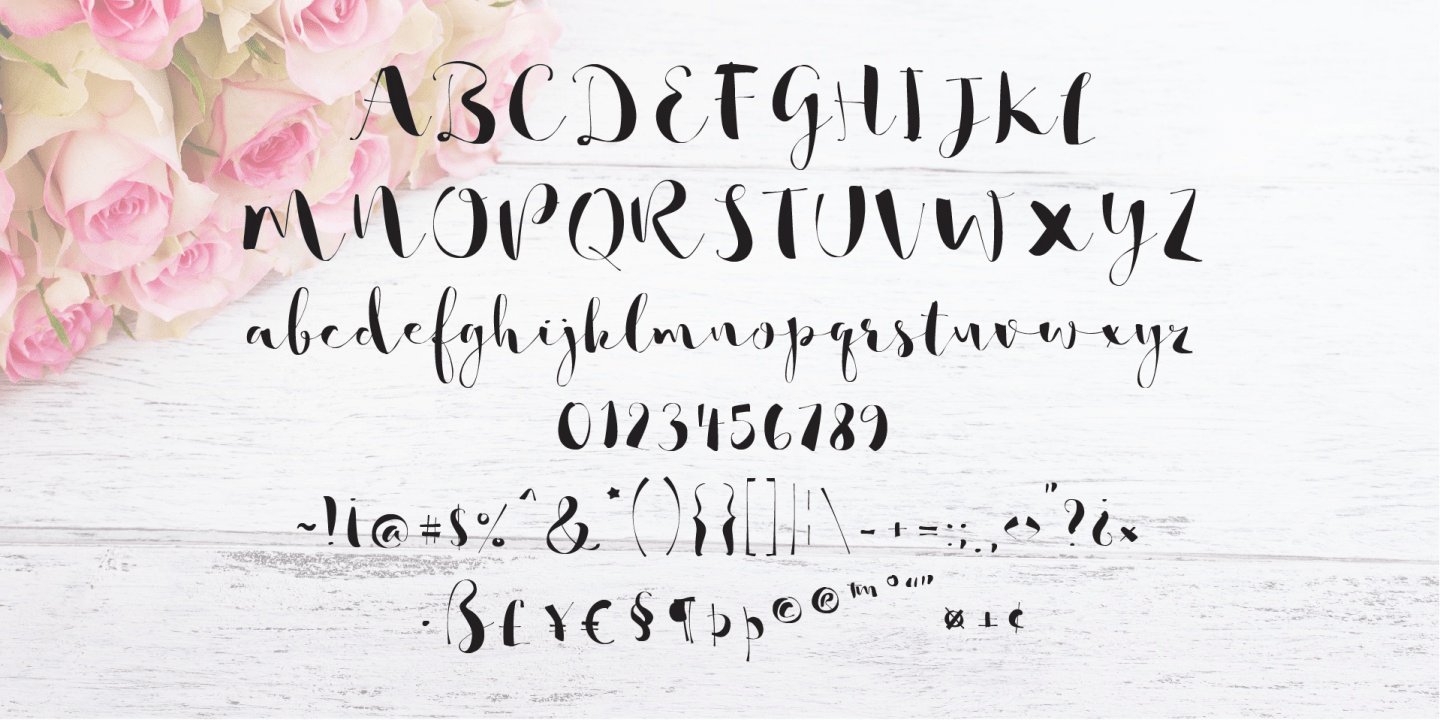 ABCDEFGHIJKL
MNOPQRSTUVWXYZ
abcdefghijklmnopqrstuvwxyz
0123456789
~!¡@#$%^&*(){}[]|¦\-+=:;.,<>"?¿×
·ß£¥€§¶Þþ©®™°“”¤±¢